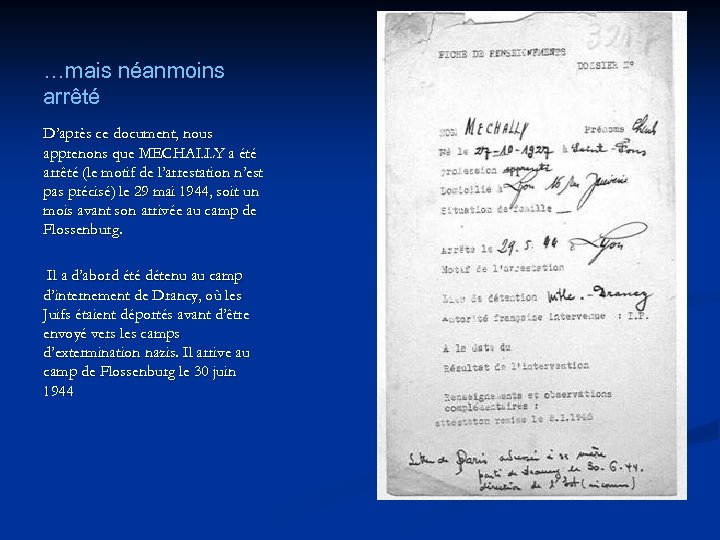 …mais néanmoins
arrêté
D’après ce document, nous
apprenons que MECHALLY a été
arrêté (le motif de l’arrestation n’est
pas précisé) le 29 mai 1944, soit un
mois avant son arrivée au camp de
Flossenburg.
Il a d’abord été détenu au camp
d’internement de Drancy, où les
Juifs étaient déportés avant d’être
envoyé vers les camps
d’extermination nazis. Il arrive au
camp de Flossenburg le 30 juin
1944
FICHE DE RENSEIGNEMENTS
DOSSIER N°
NOM MECHALLY Prénoms
Né le 27-10-1927 à Saint-Fons
profession apprenti
Domicilié à Lyon 16
Situation de famille
Arrêté le 29.5.44 à Lyon
Motif de l'arrestation
Lieu de détention - Drancy
Autorité française intervenue : I.P.
A la date du
Résultat de l'intervention
Renseignements et observations
complémentaires :
attestation remise le 8.I.1948
Lettre de Paris adressée à sa mère
parti de Drancy le 30-6-44.
direction de l'Est (inconnu)